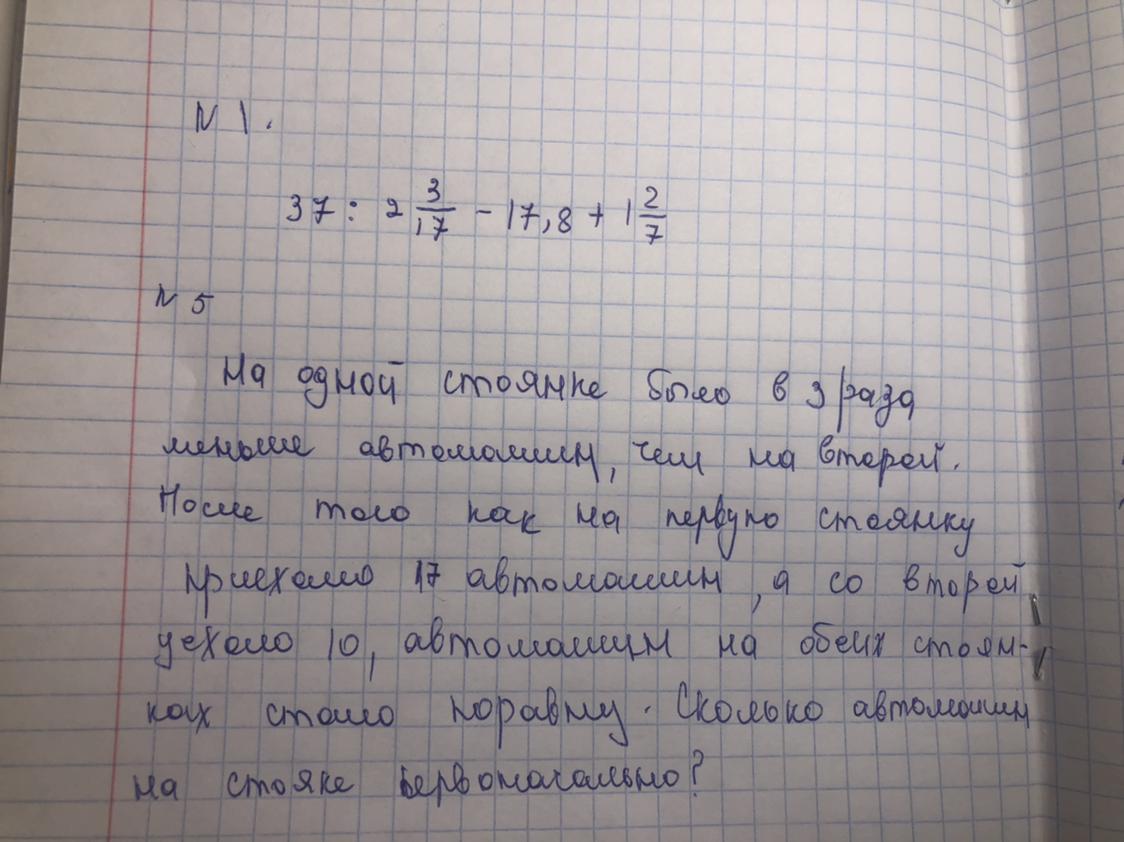 N 1.
37 : 2 3/17 - 17,8 + 1 2/7
N 5
На одной стоянке было в 3 раза
меньше автомашин, чем на второй.
После того как на первую стоянку
приехало 17 автомашин, а со второй
уехало 10, автомашин на обеих стоян-
ках стало поравну. Сколько автомашин
на стояке первоначально?